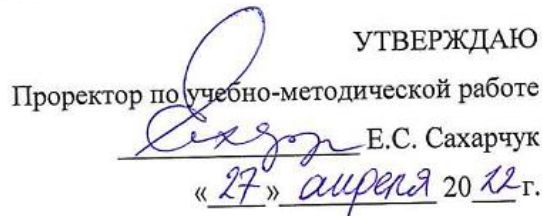 УТВЕРЖДАЮ
Проректор по учебно-методической работе
Е.С. Сахарчук
« 27 » апреля 20 22 г.